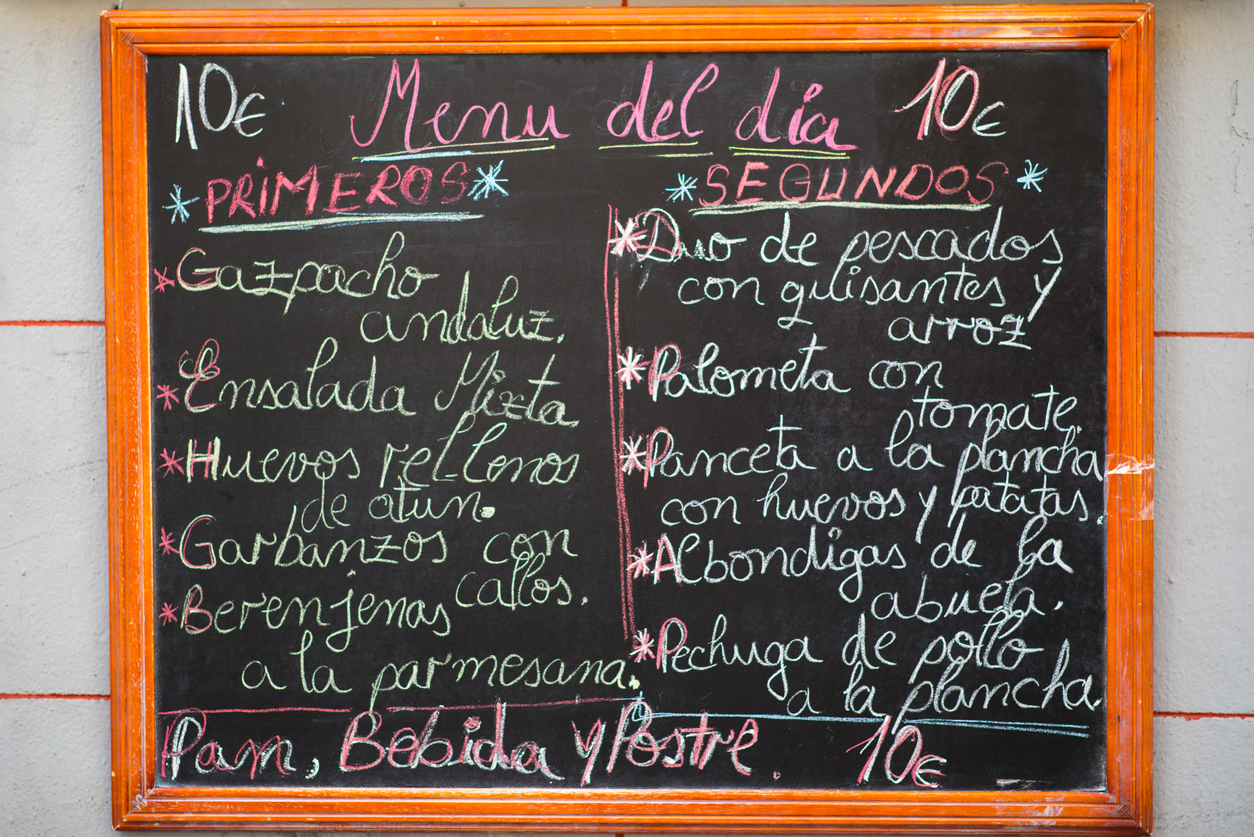 10€ Menu del dia 10€
*PRIMEROS*
Gazpacho
andaluz.
*Ensalada Mixta
*Huevos rellenos
de atun.
*Garbanzos con
callos.
*Berenjenas
a la parmesana.
*SEGUNDOS*
*Duo de pescados
con guisantes y
arroz
*Palometa con
tomate.
*Panceta a la plancha
con huevos y patatas.
*Albondigas de la
abuela.
*Pechuga de pollo
a la plancha.
Pam, Bebida y Postre. 10€